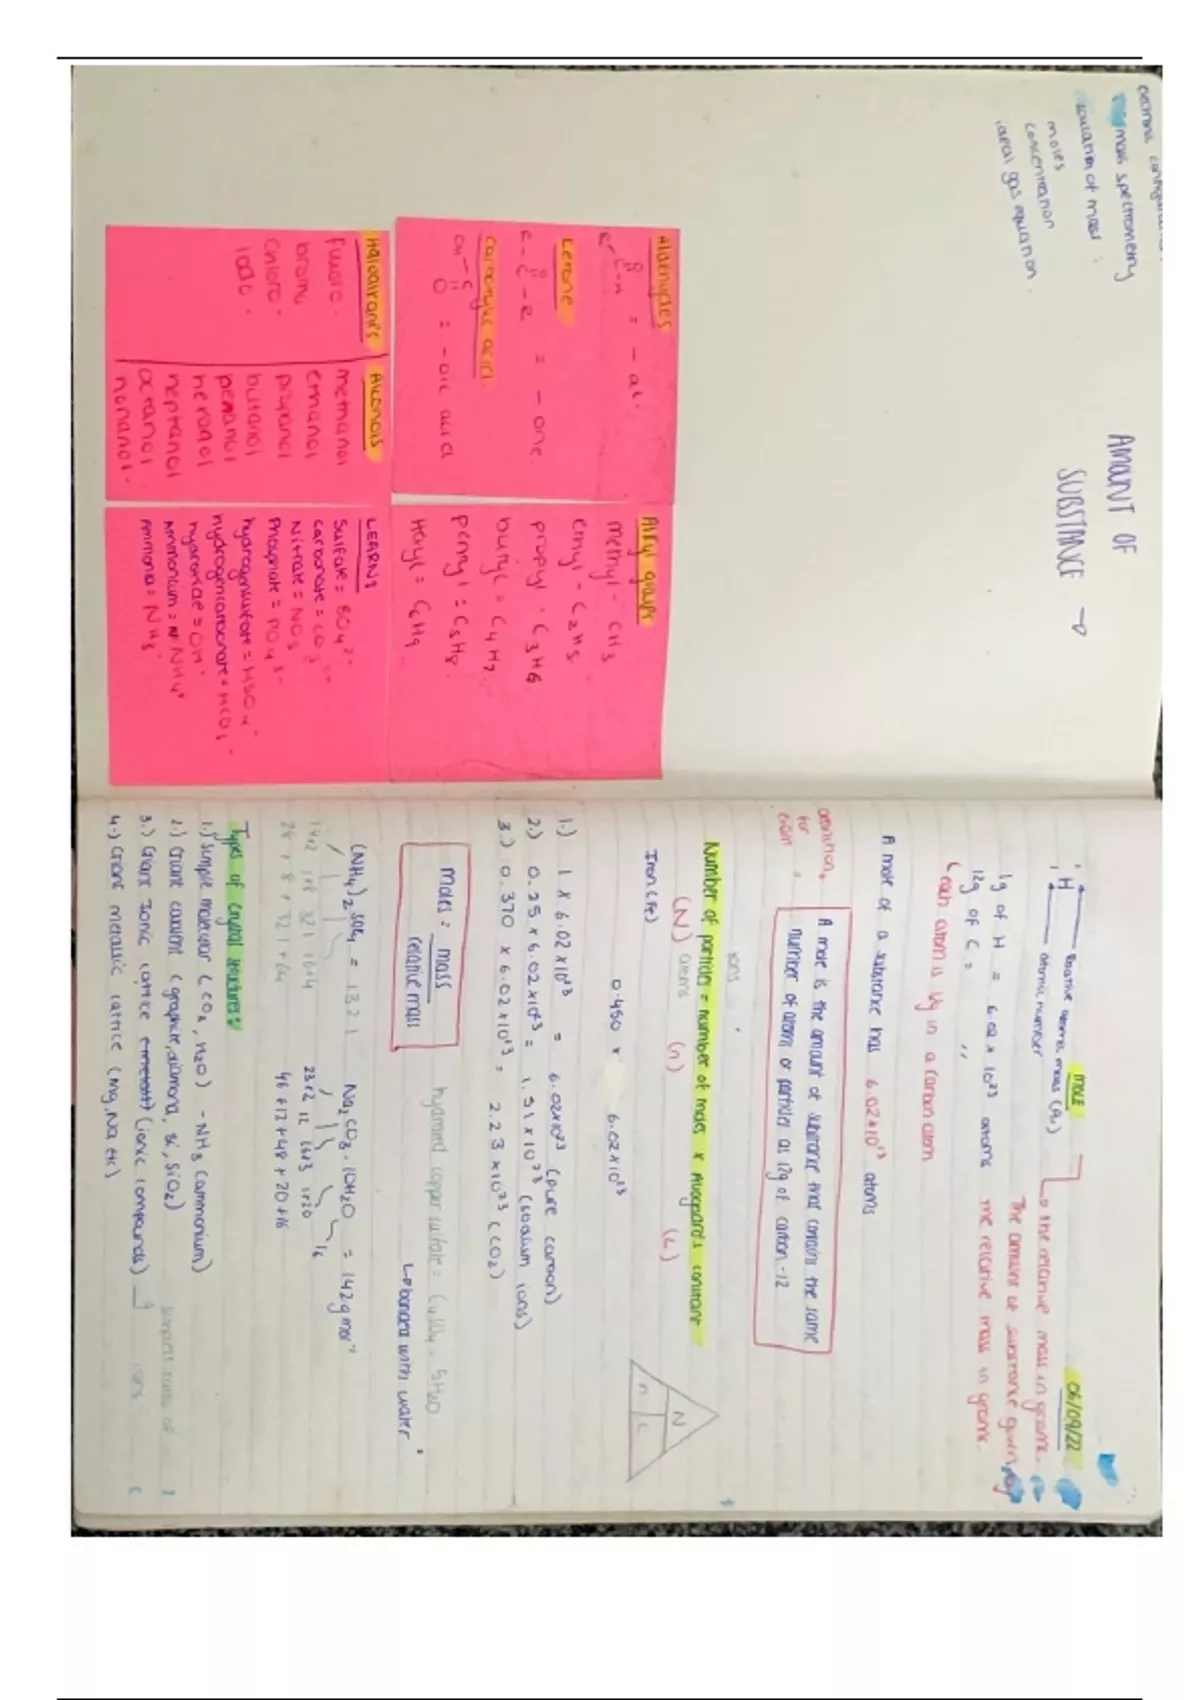 mass spectrometry
moles
concentration
ideal gas equation
AMOUNT OF
SUBSTANCE →
Aldehydes
= - al.
Ketone
= - one.
Carboxylic acid
= - oic acid
Alkyl groups
methyl - CH3
ethyl - C2H5
propyl - C3H6
butyl = C4H7
pentyl = C5H8
Hexyl = C6H9
Haloalkanes
fluoro -
bromo
chloro -
iodo -
Alcohols
methanol
ethanol
propanol
butanol
pentanol
hexanol
heptanol
octanol
nonanol
LEARN:
Sulfate = SO4 2-
carbonate = CO3 2-
Nitrate = NO3 -
Phosphate = PO4 3-
hydrogensulfate = HSO4 -
hydrogencarbonate = HCO3 -
hydroxide = OH -
Ammonium = NH4 +
Ammonia = NH3
MOLE
06/09/22
Relative atomic mass (Ar)
atomic number
1 H
1
→ the relative mass in grams.
The amount of substance given
1g of H = 6.02 x 10^23 atoms
the relative mass in grams.
12g of C = ,,
each atom is 1/12 in a carbon atom
A mole of a substance has 6.02x10^23 atoms
definition
for
exam =
A mole is the amount of substance that contains the same
number of atoms or particles as 12g of carbon-12
ions
Number of particles = number of moles x Avogadro's constant
(N) atoms (n) (L)
Iron (Fe)
N
n L
0.450 x 6.02x10^23
1.) 1 x 6.02x10^23 = 6.02x10^23 (pure carbon)
2.) 0.25 x 6.02x10^23 = 1.51 x 10^23 (sodium ions)
3.) 0.370 x 6.02x10^23 = 2.23 x10^23 (CO2)
moles = mass
relative mass
hydrated copper sulfate = CuSO4 . 5H2O
↳ bonded with water
(NH4)2 SO4 = 132.1
14x2 1x8 32.1 16x4
28 + 8 + 32.1 + 64
Na2CO3 . 10H2O = 142 g mol-1
23x2 12 16x3 1x20 16
46 + 12 + 48 + 20 + 16
Types of crystal structures:
1.) Simple molecular (CO2, H2O) - NH3 (ammonium)
2.) Giant covalent (graphite, diamond, Si, SiO2)
3.) Giant Ionic lattice (ionic compounds)
4.) Giant metallic lattice (Mg, Na etc)